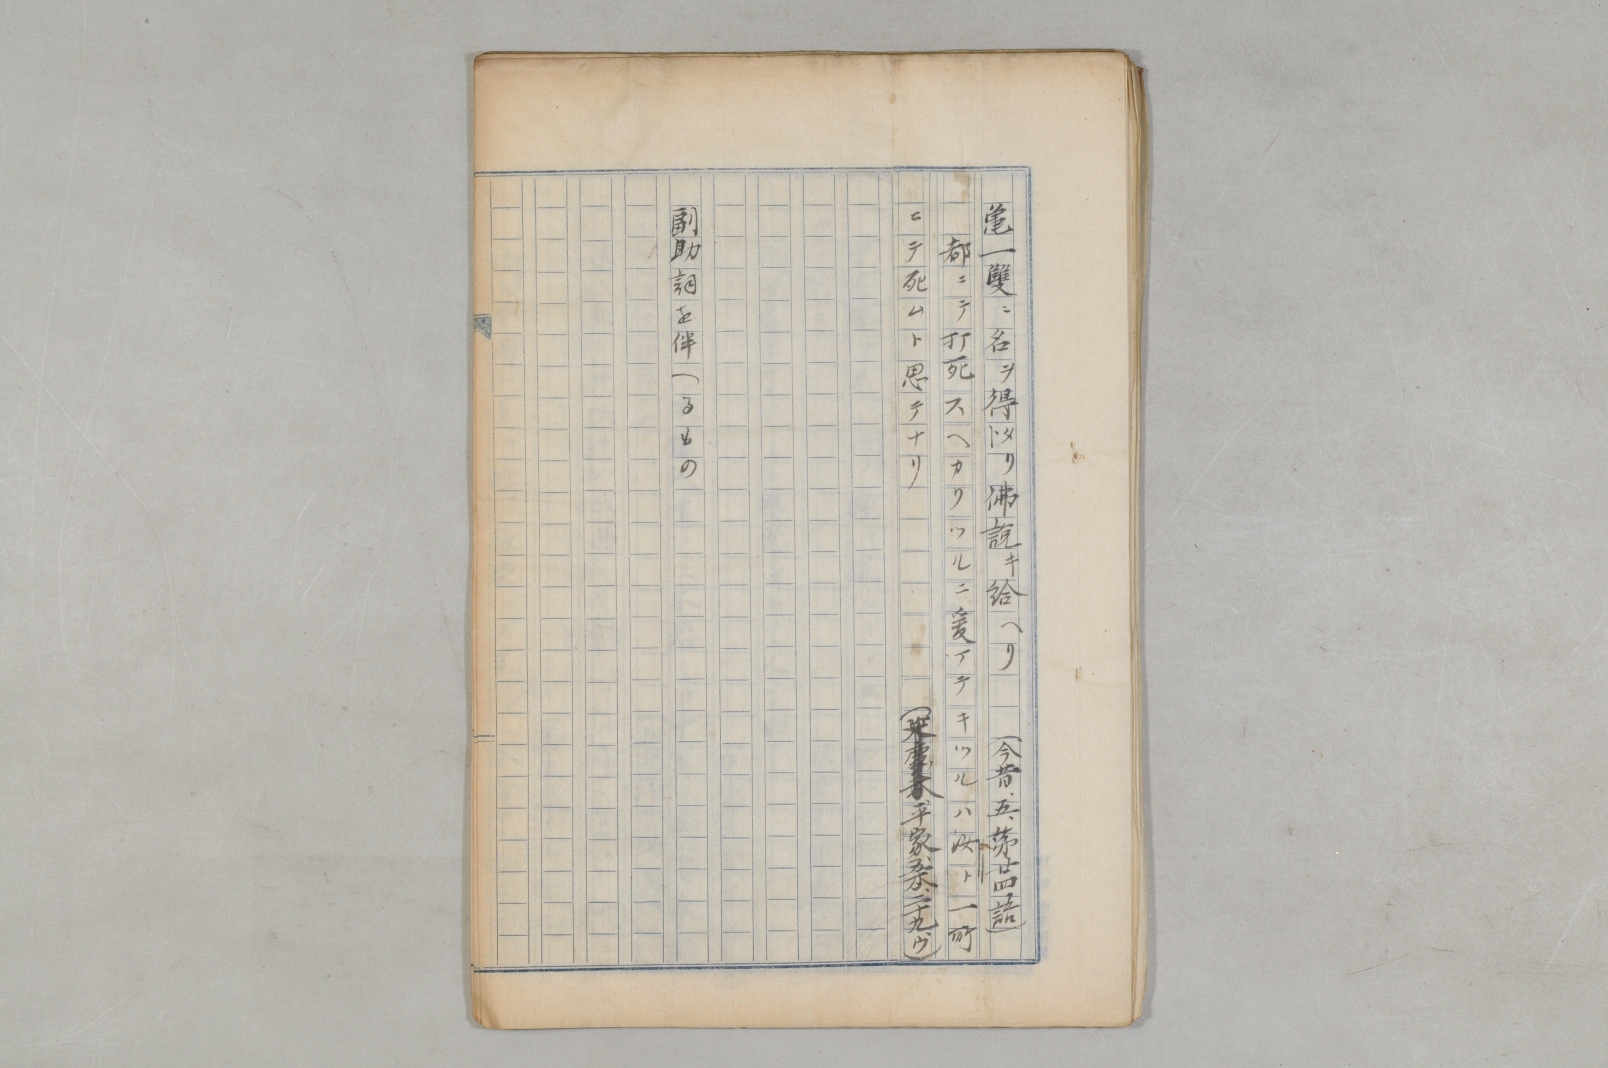 亀一雙ニ名ヲ得タリ佛説キ給ヘリ (今昔、五、第廿四語)
都ニテ打死スヘカリツルニ爰マテキツルハ汝ト一所
ニテ死ムト思テナリ (平家、二十九ウ)
副助詞を伴へるもの